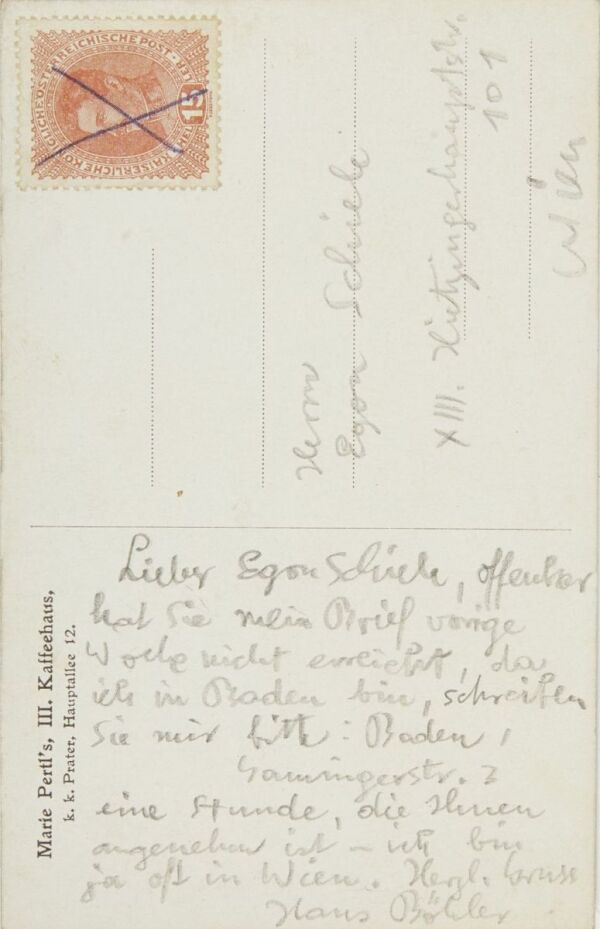 KAISERLICHE KÖNIGLICHE ÖSTERREICHISCHE POST
15
Herrn
Egon Schiele
XIII. Hietzingerhauptstr.
101
Wien
Lieber Egon Schiele, offenbar
hat Sie mein Brief vorige
Woche nicht erreicht, da
ich in Baden bin, schreiben
Sie mir bitte : Baden,
Gamingerstr. 3
eine Stunde, die Ihnen
angenehm ist – ich bin
ja oft in Wien. Herzl. Gruss
Hans Böhler
Marie Pertl's, III. Kaffeehaus,
k. k. Prater, Hauptallee 12.